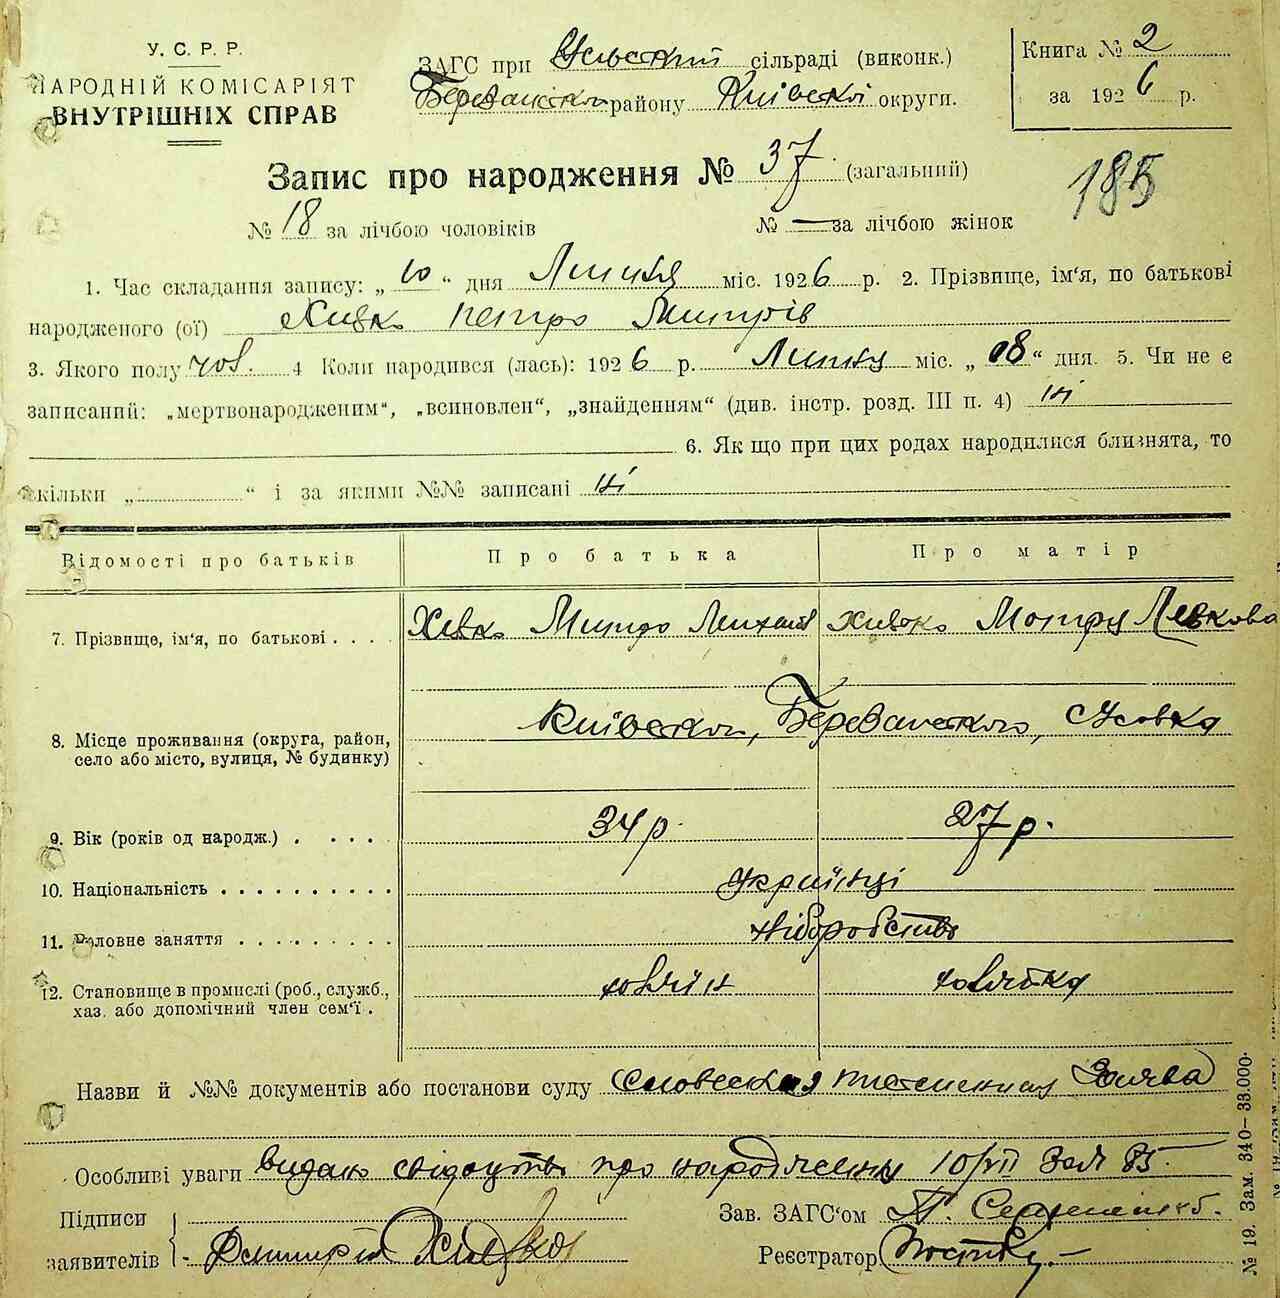 У. С. Р. Р.
НАРОДНІЙ КОМІСАРІЯТ
ВНУТРІШНІХ СПРАВ
ЗАГС при сільраді (виконк.)
району Київської округи.
Книга № 2
за 1926 р.
Запис про народження № 37 (загальний)
185
№ 18 за лічбою чоловіків № — за лічбою жінок
1. Час складання запису: „10“ дня Липня міс. 1926 р. 2. Прізвище, ім'я, по батькові
народженого (ої) Хивко Петро
3. Якого полу чов. 4 Коли народився (лась): 1926 р. Липня міс. „08“ дня. 5. Чи не є
записаний: „мертвонародженим“, „всиновлен“, „знайденням“ (див. інстр. розд. III п. 4) ні
6. Як що при цих родах народилися близнята, то
скільки „ “ і за якими №№ записані ні
Відомості про батьків
Про батька
Про матір
7. Прізвище, ім'я, по батькові . . . .
Хивко Михаил
Хивко Мотря Левкова
8. Місце проживання (округа, район,
село або місто, вулиця, № будинку)
Усовка
9. Вік (років од народж.) . . . . .
34 р.
27 р.
10. Національність . . . . . . . . . .
Українці
11. Головне заняття . . . . . . . . .
хліборобство
12. Становище в промислі (роб., служб.,
хаз. або допомічний член сем'ї .
хазяїн
хазяйка
Назви й №№ документів або постанови суду Словеская заява
Особливі уваги видано про народження 10/VII 85
Підписи
заявителів
Хивко
Зав. ЗАГС'ом
Реєстратор
№ 19. Зам. 340–33.000.